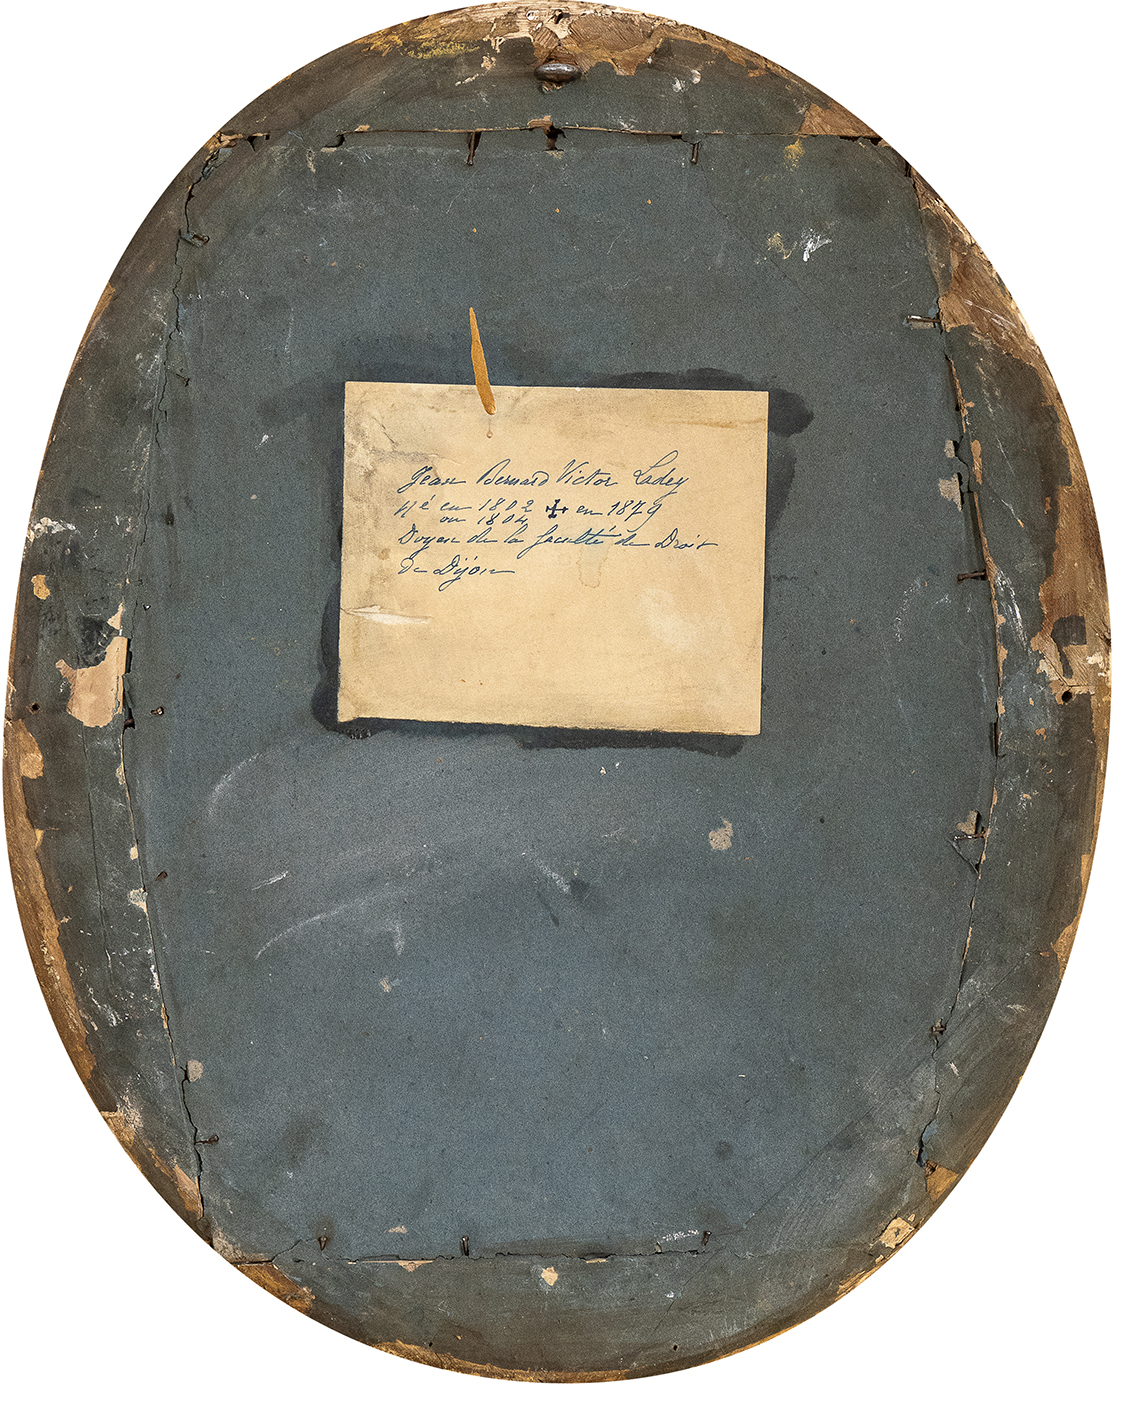 Jean Bernard Victor Ladey
Né en 1802 ✢ en 1879
ou 1804
Doyen de la faculté de Droit
de Dijon